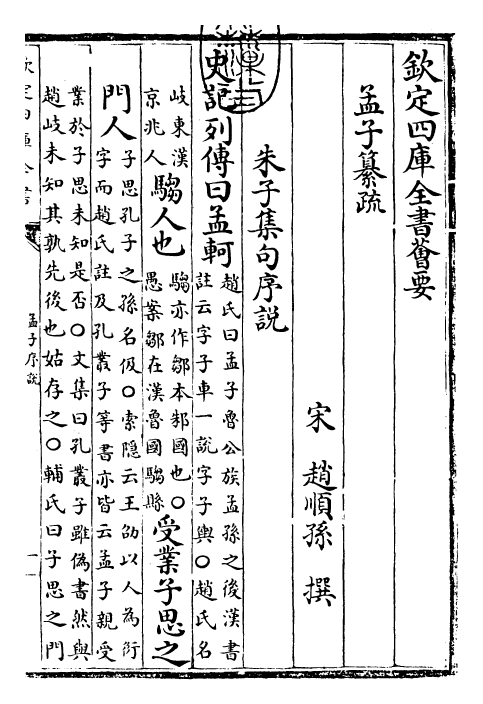 欽定四庫全書薈要
孟子纂疏
宋 趙順孫 撰
朱子集句序説
史記列傳曰孟軻
趙氏曰孟子魯公族孟孫之後漢書
註云字子車一説字子輿○趙氏名
岐東漢
京兆人
騶人也
騶亦作鄒本邾國也○
愚案鄒在漢魯國騶縣
受業子思之
門人
子思孔子之孫名伋○索隱云王劭以人為衍
字而趙氏註及孔叢子等書亦皆云孟子親受
業於子思未知是否○文集曰孔叢子雖偽書然與
趙岐未知其孰先後也姑存之○輔氏曰子思之門
欽定四庫全書
孟子序説
一